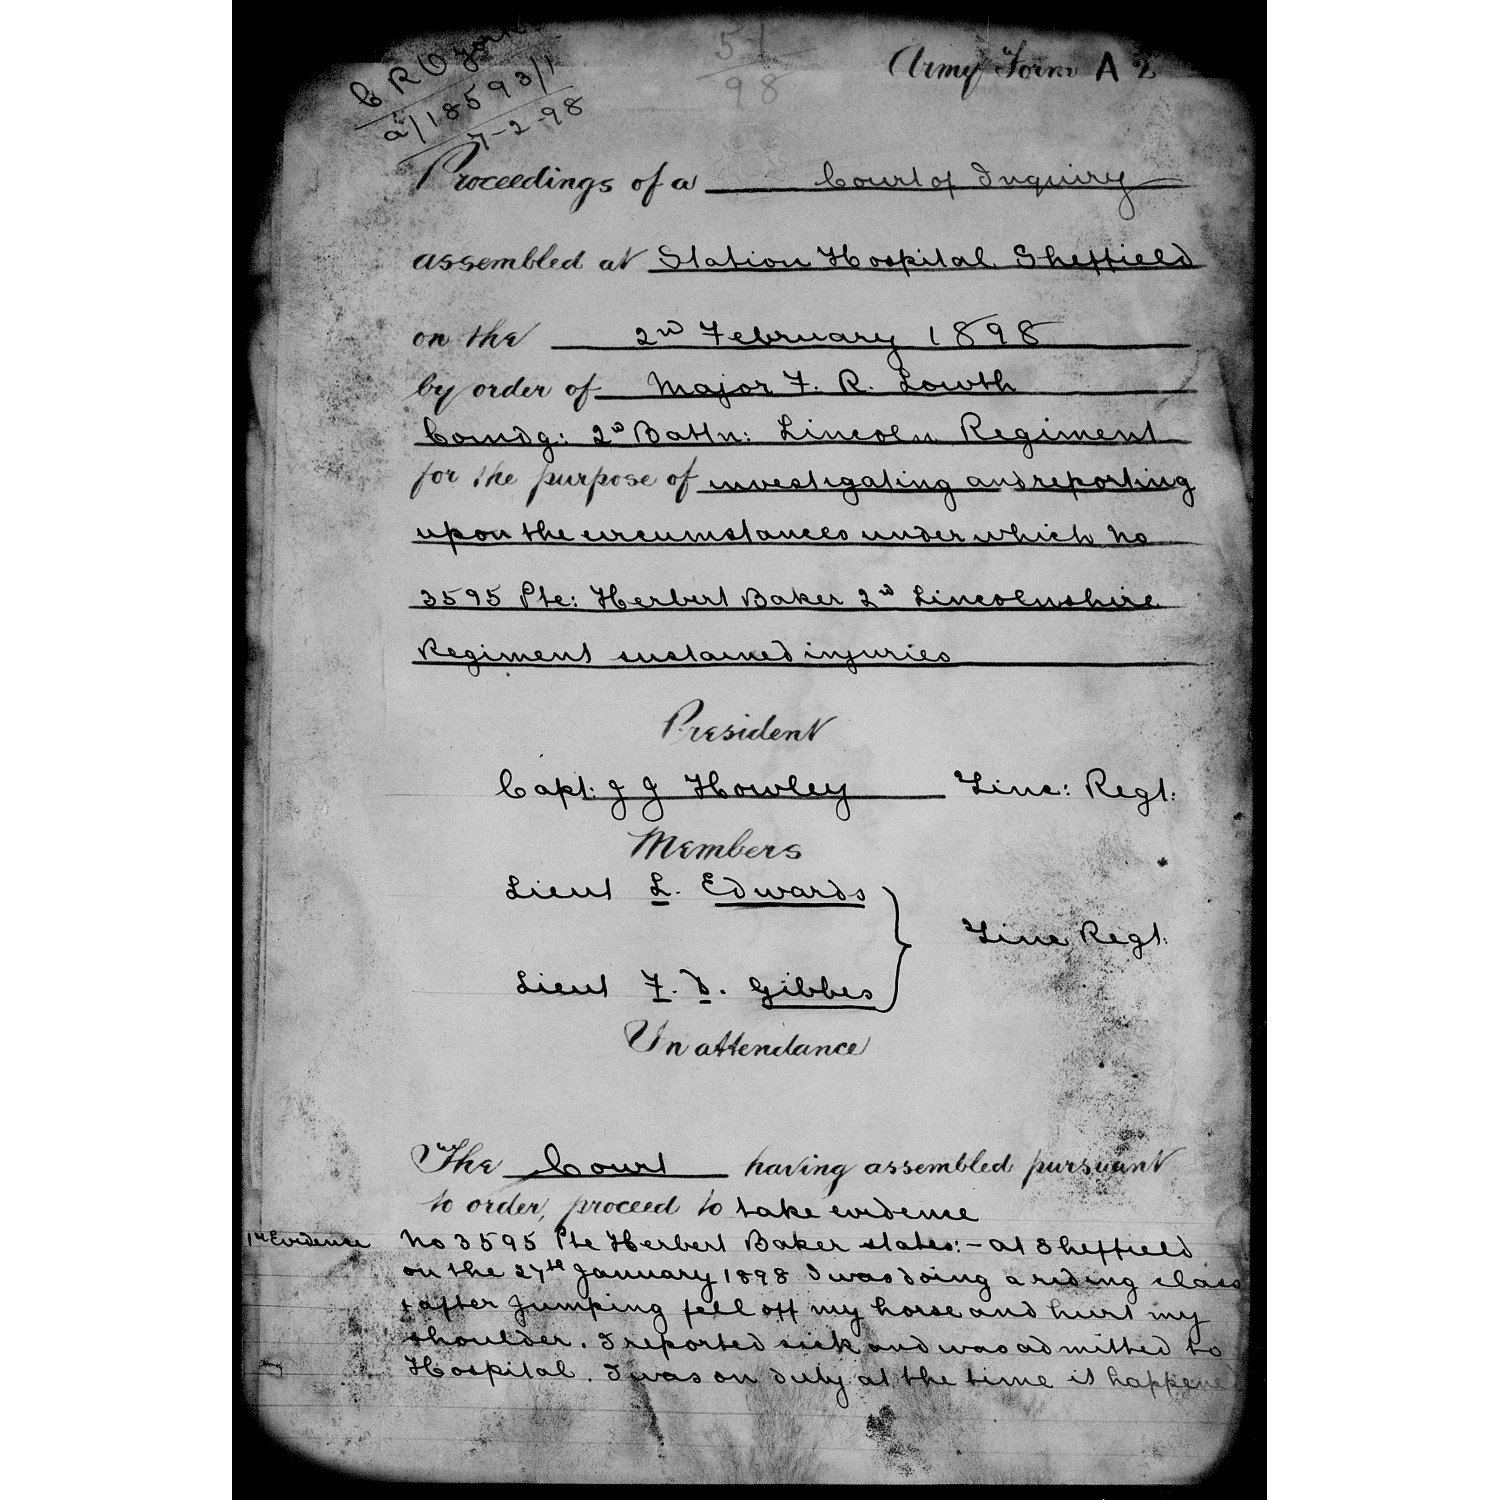 C R O York
a/18593/1
7-2-98
51
98
Army Form A 2
Proceedings of a Court of Inquiry
assembled at Station Hospital Sheffield
on the 2nd February 1898
by order of Major F. R. Lowth
Comdg: 2d Battn: Lincoln Regiment
for the purpose of investigating and reporting
upon the circumstances under which No
3595 Pte: Herbert Baker 2d Lincolnshire
Regiment sustained injuries
President
Capt: J J Howley Linc: Regt:
Members
Lieut L. Edwards
Linc Regt:
Lieut F. D. Gibbes
In attendance
The Court having assembled pursuant
to order, proceed to take evidence
1st Evidence No 3595 Pte Herbert Baker states:- at Sheffield
on the 27th January 1898 I was doing a riding class
& after jumping fell off my horse and hurt my
shoulder. I reported sick and was admitted to
Hospital. I was on duty at the time it happene